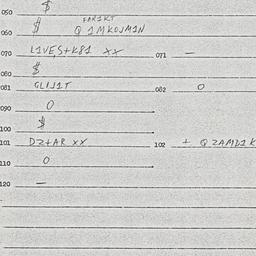 050 $
FAR1KT
060 $ Q 1MKOJM1N
070 L1VES+K81 XX 071 —
080 $
081 GLIJ1T 082 O
090 O
100 $
101 DZ+AR XX 102 + QZAMD1K
110 O
120 —